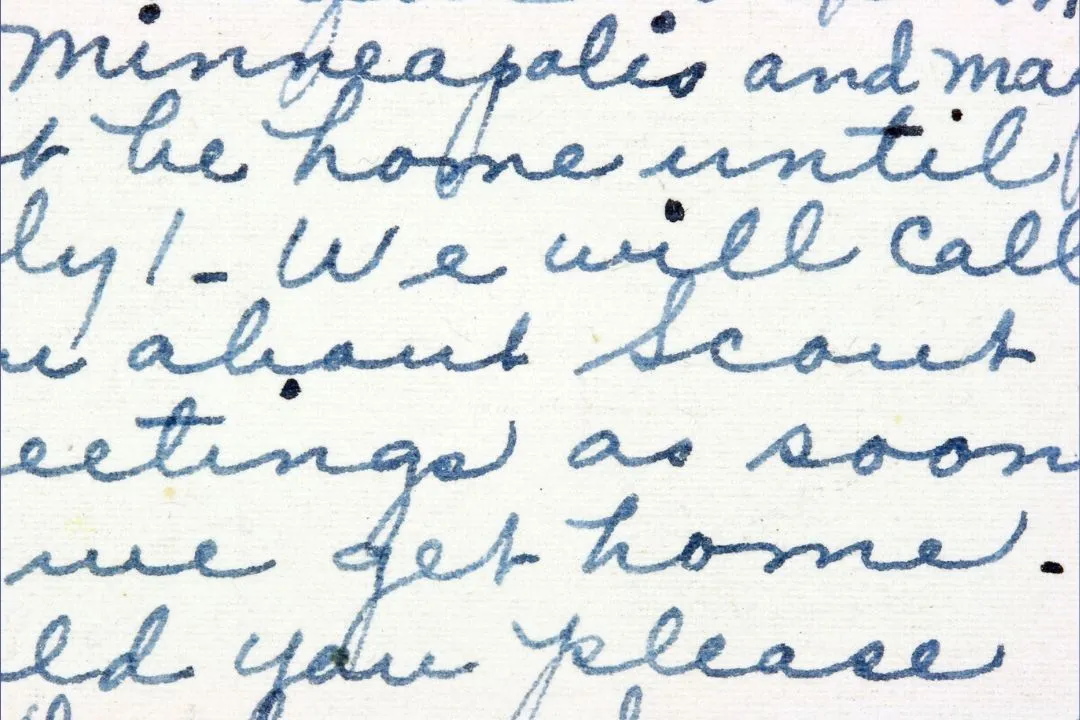 Minneapolis and ma
t be home until
ly 1 - We will call
u about Scout
eetings as soon
we get home.
ld you please